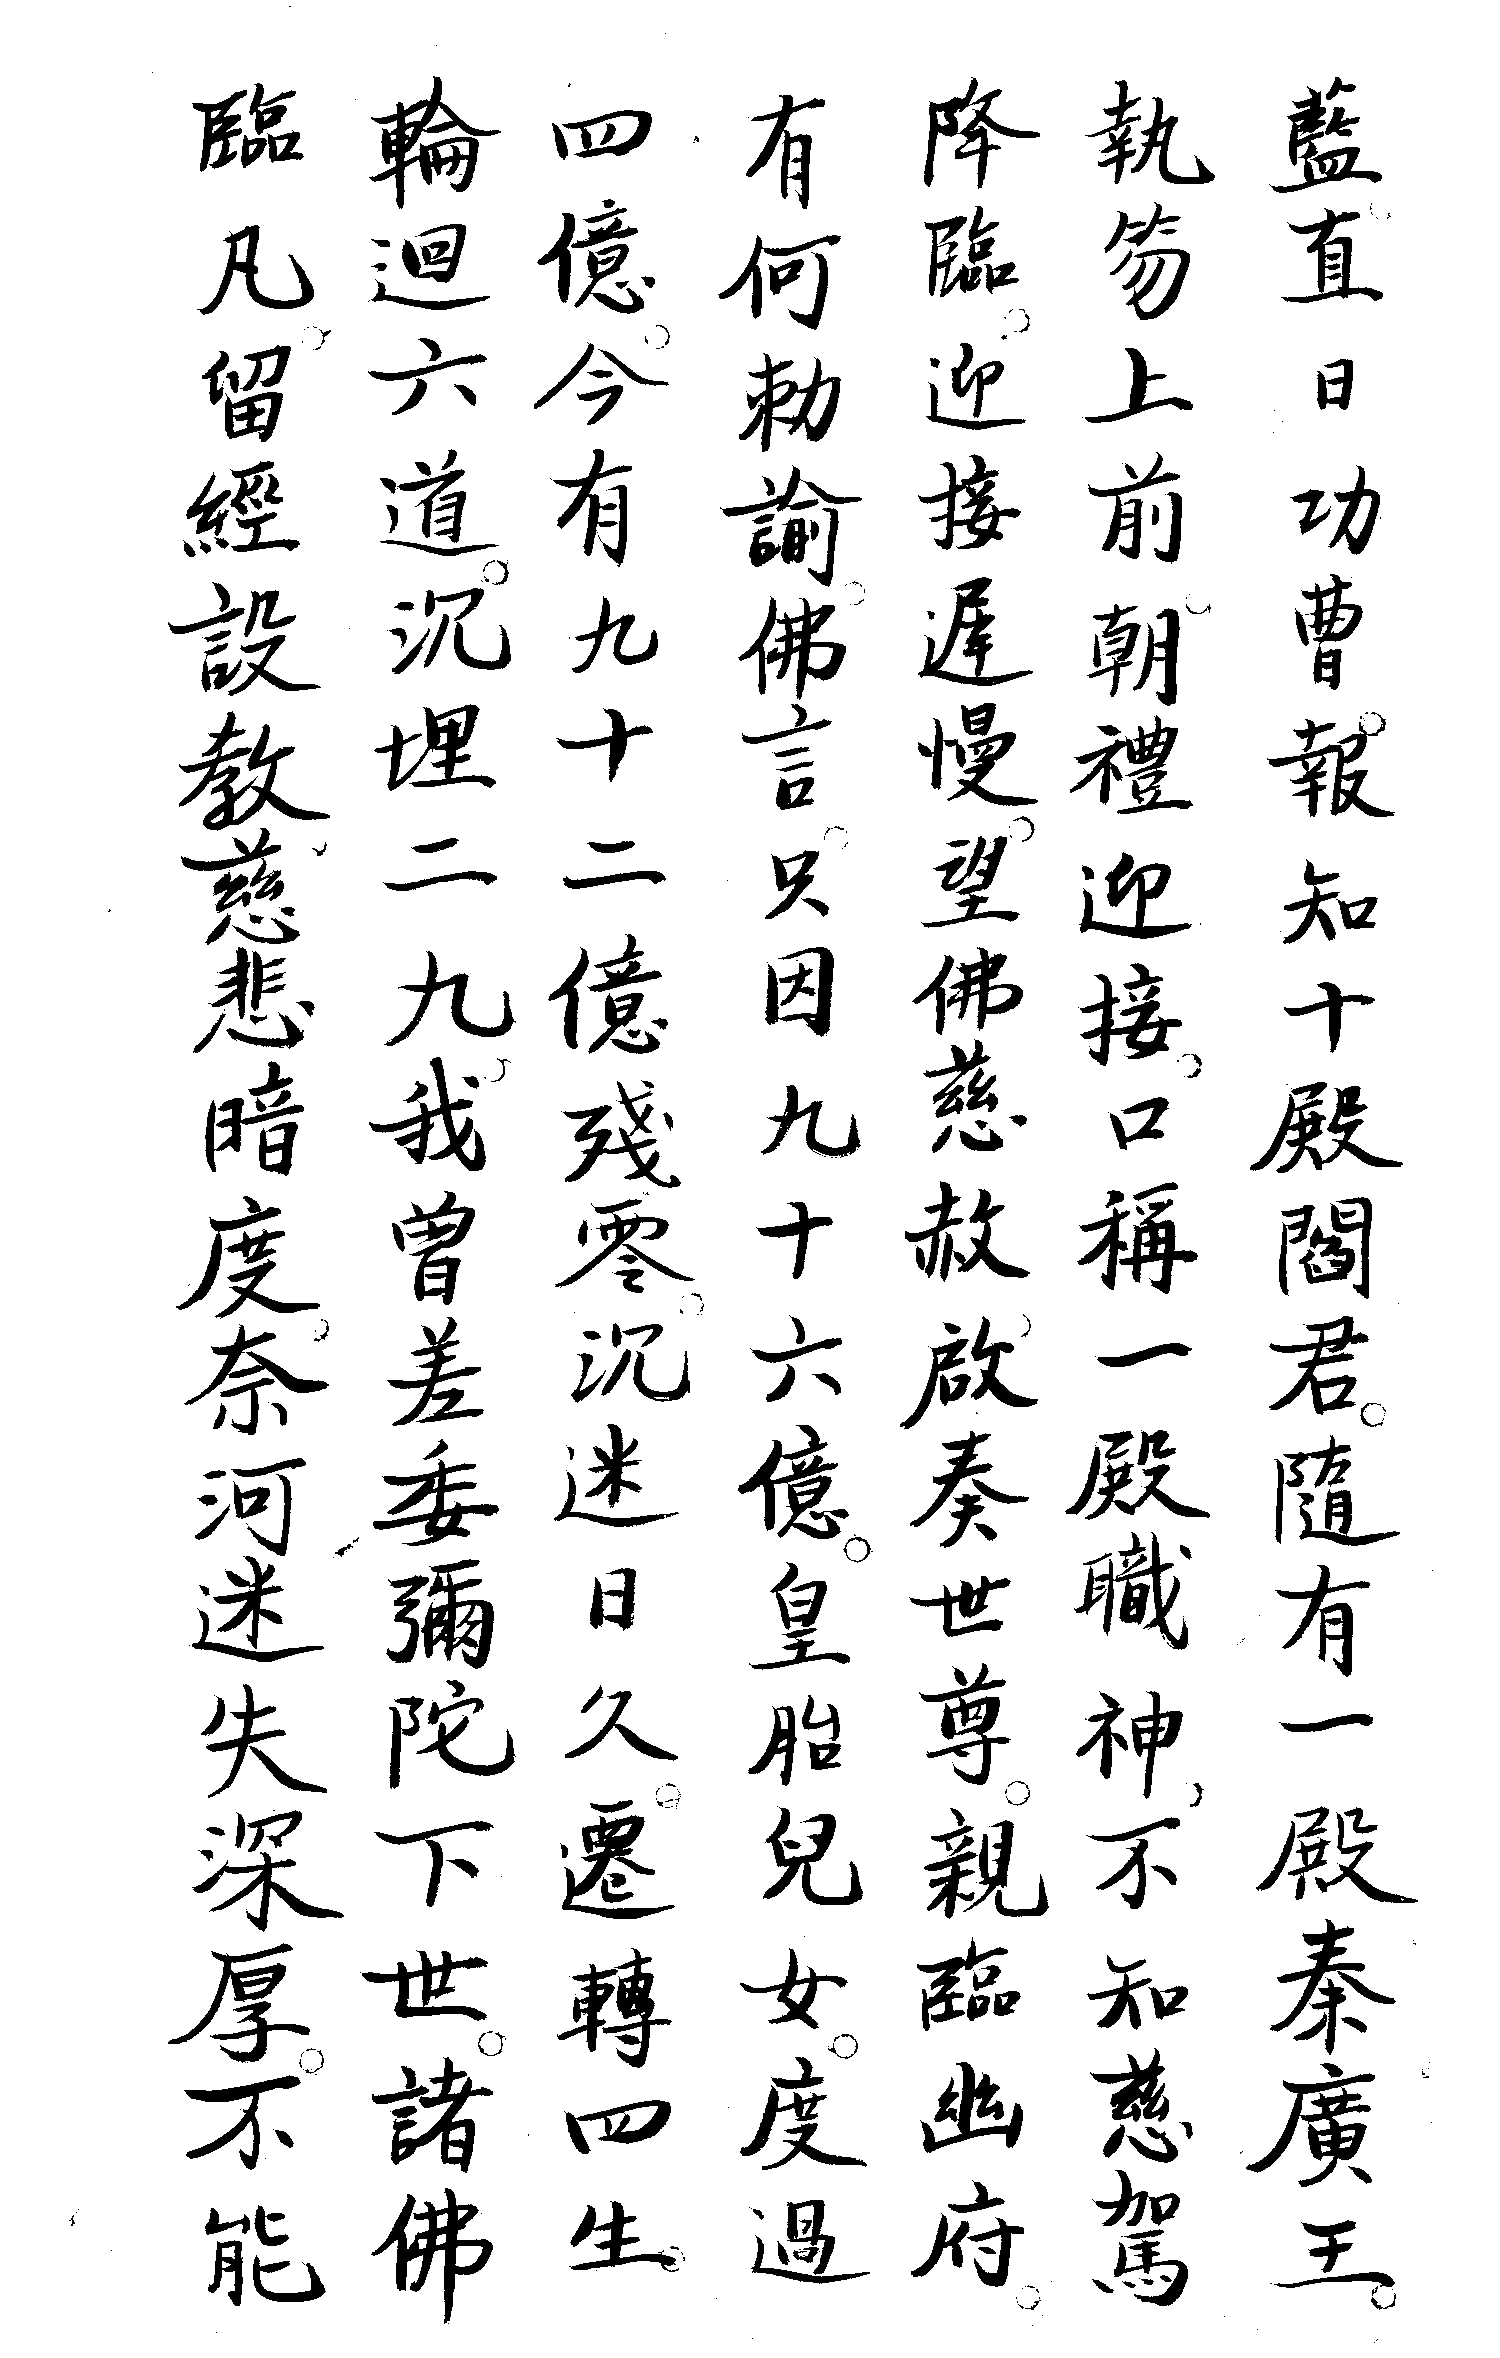 藍。直日功曹。報知十殿閻君。隨有一殿秦廣王。
執笏上前。朝禮迎接。口稱一殿職神、不知慈駕
降臨。迎接遲慢。望佛慈赦、啟奏世尊。親臨幽府。
有何勅諭。佛言。只因九十六億。皇胎兒女。度過
四億。今有九十二億殘零。沉迷日久。遷轉四生。
輪迴六道。沉埋二九、我曾差委彌陀下世。諸佛
臨凡。留經設教、慈悲暗度。奈河迷失深厚。不能